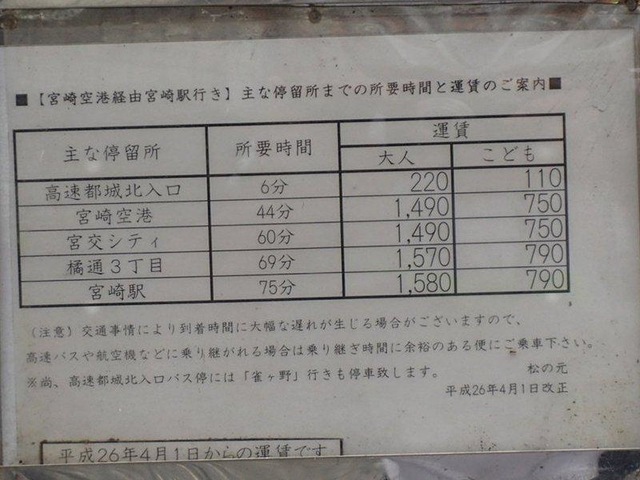 ■【宮崎空港経由宮崎駅行き】主な停留所までの所要時間と運賃のご案内■
主な停留所 所要時間 運賃
大人 こども
高速都城北入口 6分 220 110
宮崎空港 44分 1,490 750
宮交シティ 60分 1,490 750
橘通3丁目 69分 1,570 790
宮崎駅 75分 1,580 790
(注意)交通事情により到着時間に大幅な遅れが生じる場合がございますので、
高速バスや航空機などに乗り継がれる場合は乗り継ぎ時間に余裕のある便にご乗車下さい。
※尚、高速都城北入口バス停には「雀ヶ野」行きも停車致します。 松の元
平成26年4月1日改正
平成26年4月1日からの運賃です